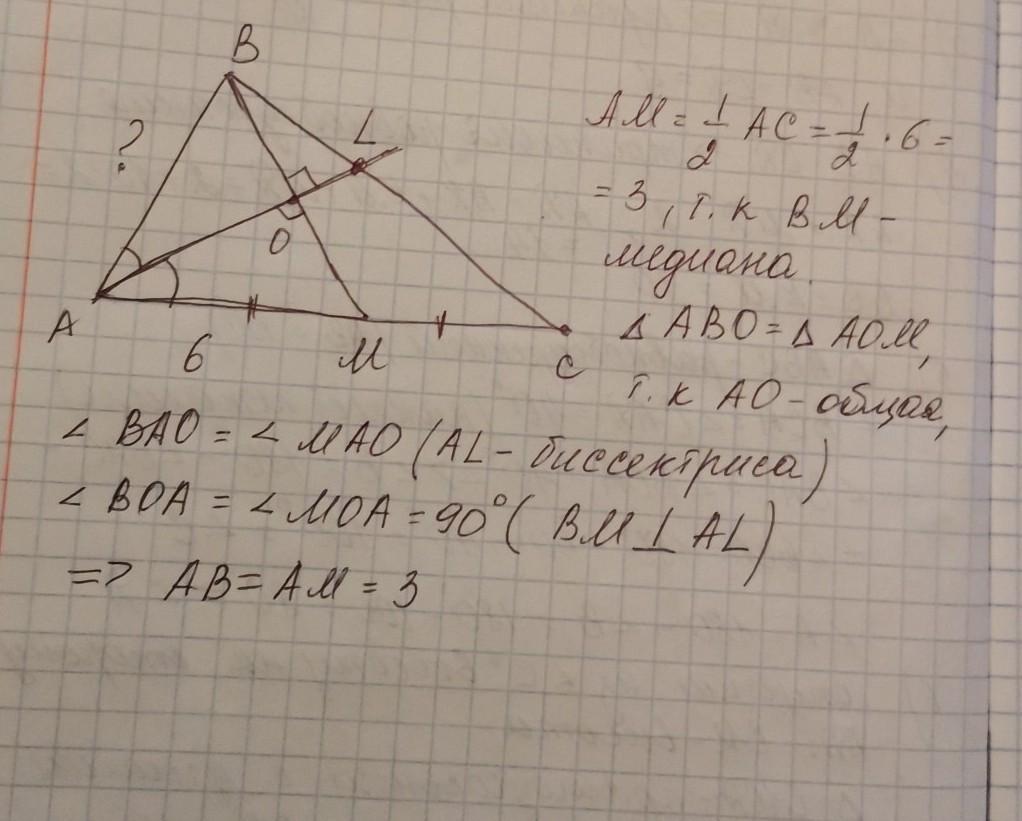 B
L
?
O
A
6
M
C
AM = 1/2 AC = 1/2 · 6 =
= 3, т.к BM -
медиана.
Δ ABO = Δ AOM,
т.к AO - общая,
∠ BAO = ∠ MAO (AL - биссектриса)
∠ BOA = ∠ MOA = 90° ( BM ⊥ AL)
=> AB = AM = 3